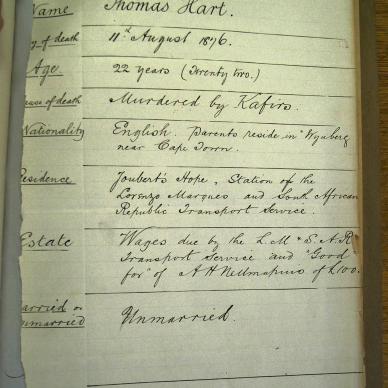 Name Thomas Hart.
of death 11th August 1876.
Age. 22 years (Twenty two.)
of death Murdered by Kafirs.
Nationality English. Parents reside in Wynberg
near Cape Town.
Residence Joubert's Hope, Station of the
Lorenzo Marques and South African
Republic Transport Service.
Estate Wages due by the L.M & S.A.R
Transport Service and "Good
for" of A H Nellmapius of £100.
arried or
nmarried Unmarried.